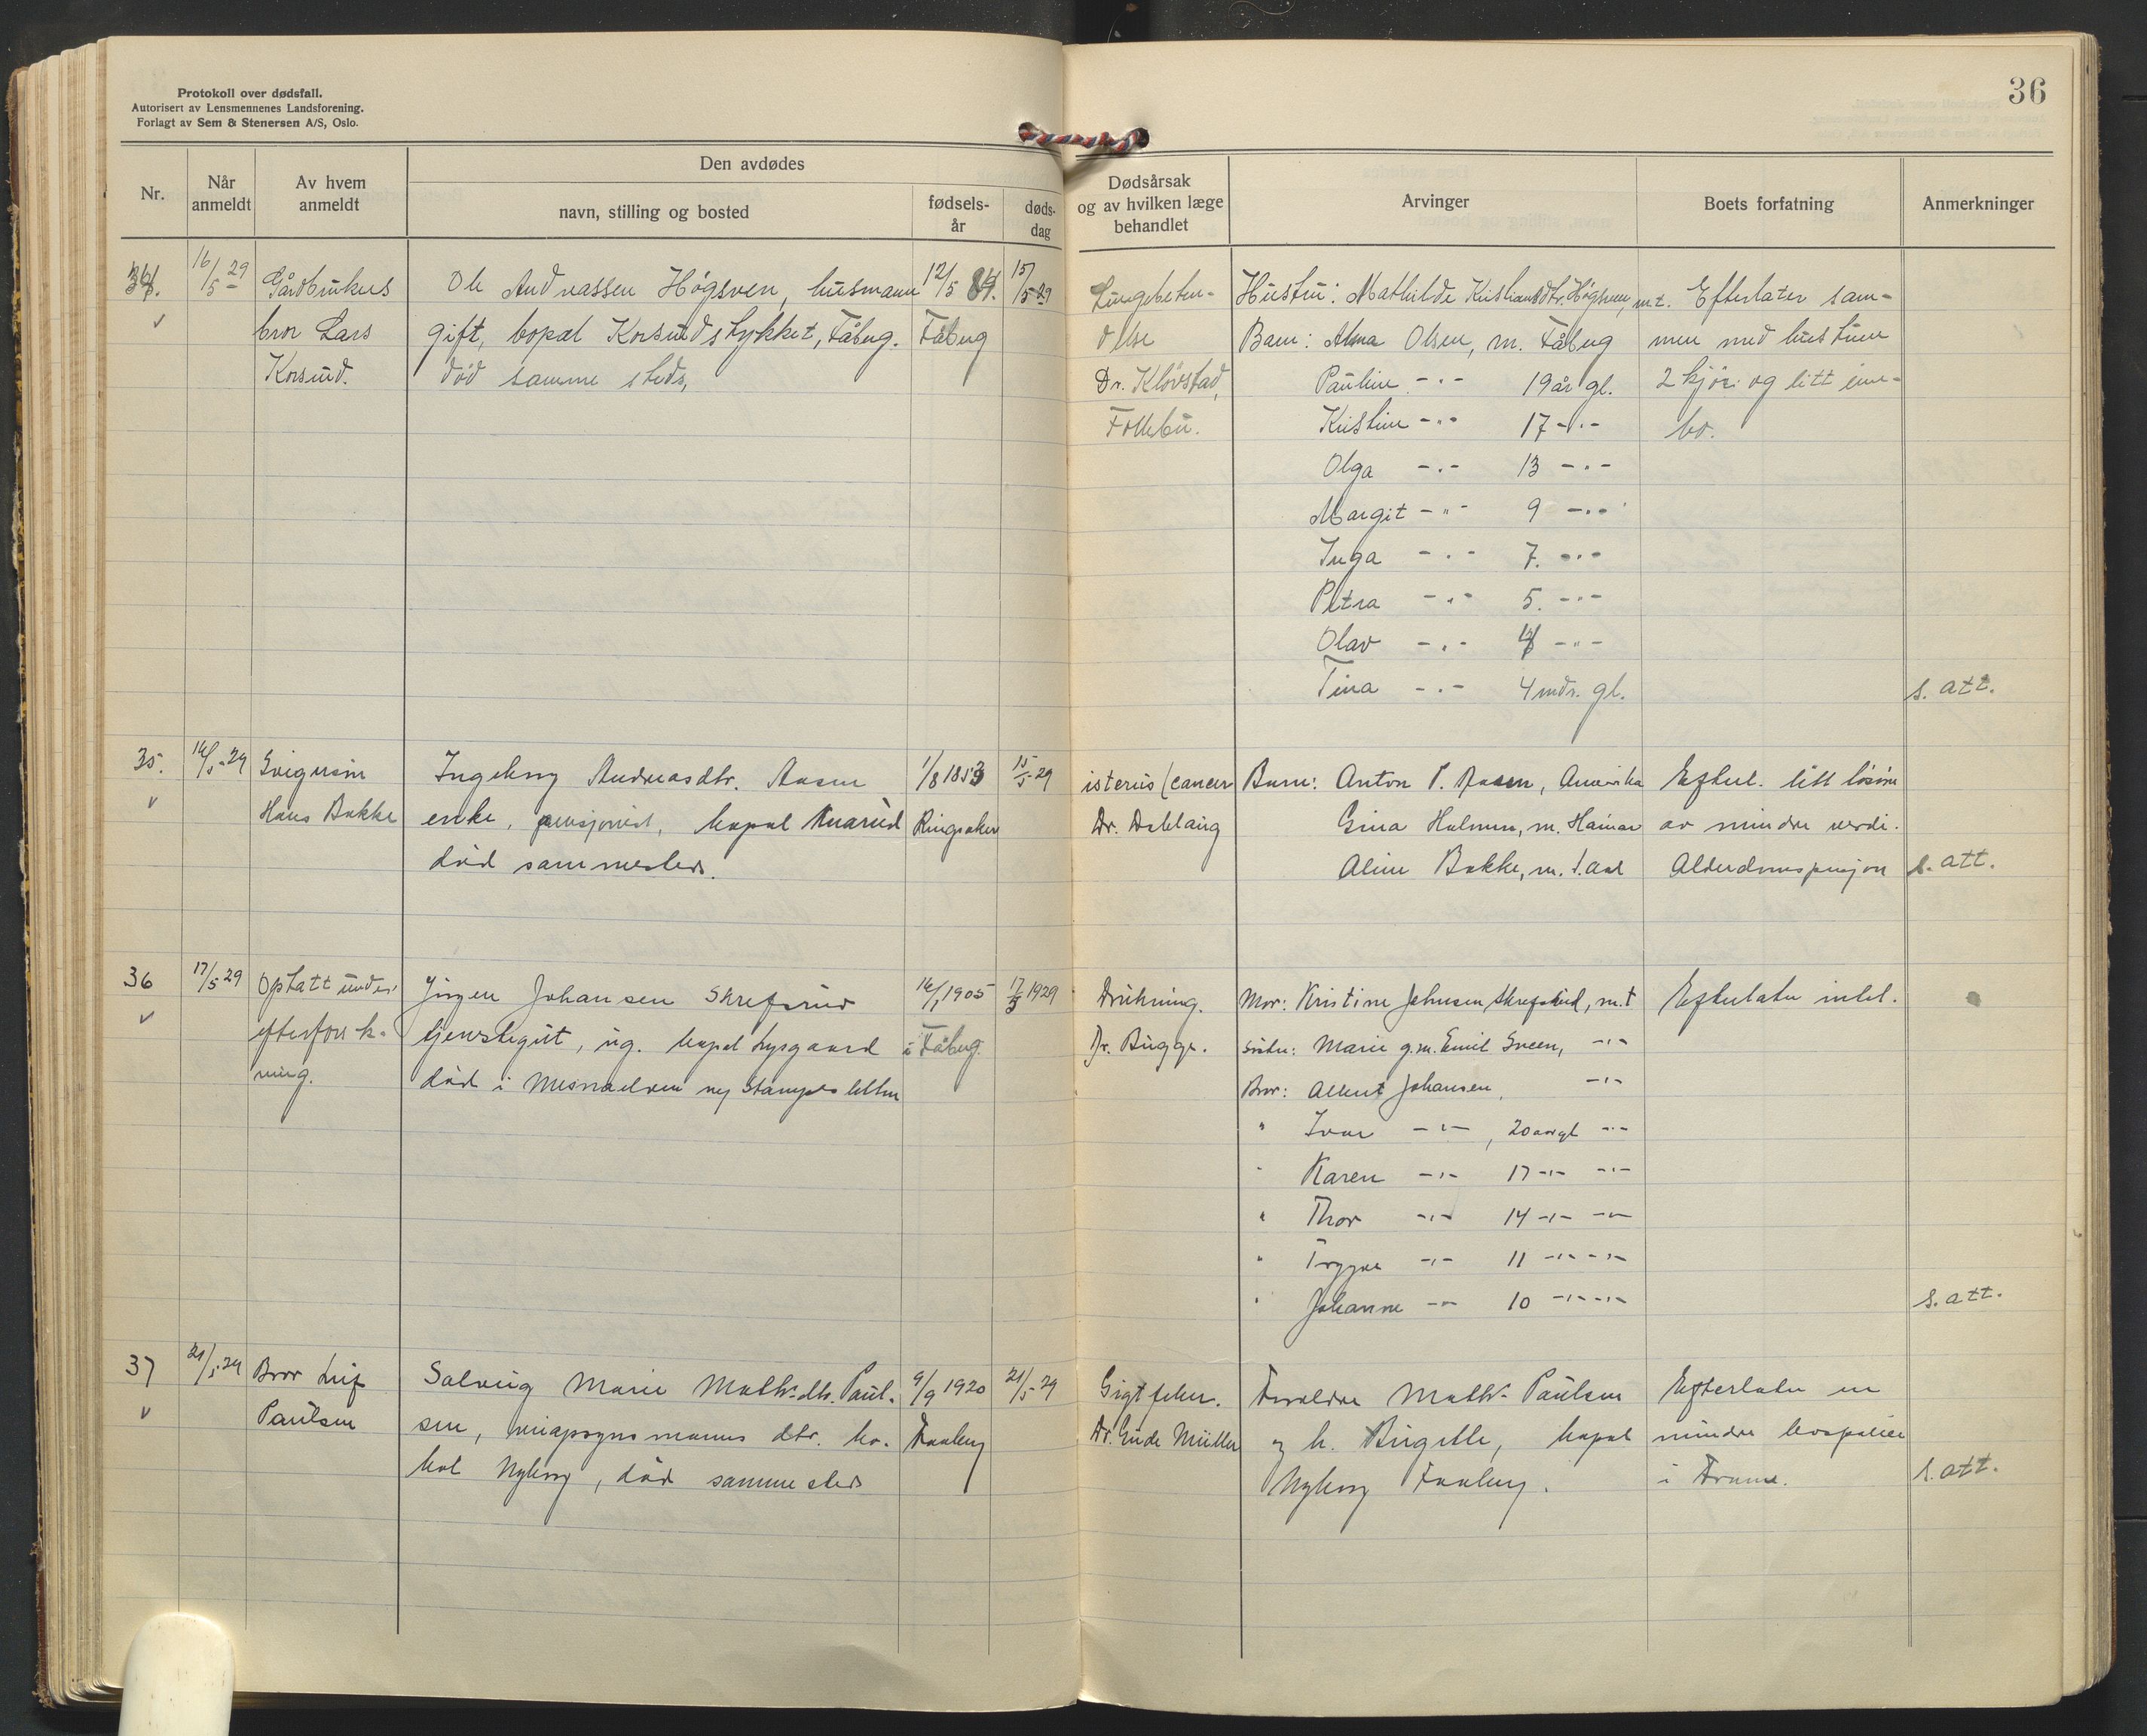 Protokoll over dødsfall.
Autorisert av Lensmennenes Landsforening.
Forlagt av Sem & Stenersen A/S, Oslo.
36
Nr.
Når anmeldt
Av hvem anmeldt
Den avdødes
navn, stilling og bosted
fødsels-år
døds-dag
Dødsårsak og av hvilken læge behandlet
Arvinger
Boets forfatning
Anmerkninger
34.
16/5 29
Gårdbrukers
bror Lars
Korsud.
Ole Andreassen Høgsveen, husmann
gift, bopæl Korsudstykket, Fåberg.
død samme steds,
12/5 84.
Fåberg
15/5-29
Lungebeten-
delse
Dr. Klövstad,
Follebu.
Hustru: Mathilde Kristiansdtr. Høgsveen, m.t.
Barn: Alma Olsen, m. Fåberg
Pauline -"- 19 år gl.
Kristine -"- 17 -"-
Olga -"- 13 -"-
Margit -"- 9 -"-
Inga -"- 7. -"-
Petra -"- 5. -"-
Olav -"- -"-
Tina -"- 4 mdr. gl.
Efterlater sam-
men med hustruen
2 kjør og litt inn-
bo.
s. att.
35.
16/5-29
Svigersøn
Hans Bakke
Ingeborg Andreasdtr. Aasen
enke, pensjonist, bopæl
død sammesteds.
1/8 1853
Ringsaker
15/5-29
isterus (cancer
Dr.
Barn: Anton P. Aasen, Amerika
Gina Holmen, m. Hamar
Aline Bakke, m.
Efterl. litt løsøre
av mindre verdi.
Alderdomspensjon
s. att.
36
17/5 29
Optatt under
efterforsk-
ning.
Jørgen Johansen Skrefsrud
tjenstegut, ug. bopæl Lysgaard
død i Mesnaelven ny Stampesletten
16/1 1905
i Fåberg.
17/5 1929
Drukning.
Dr. Bugge.
Mor: Kristine Johnsen Skrefsrud, m.t
Søster: Marie g.m. Emil Sveen, -"-
Bror: Albert Johansen, -"-
" Ivar -"-, 20 aar gl -"-
" Karen -"- 17 -"- -"-
" Thor -"- 14 -"- -"-
" Trygve -"- 11 -"- -"-
" Johanne -"- 10 -"- -"-
Efterlater intet.
s. att.
37
21/5-29
Bror Leif
Paulsen
Solveig Marie Math.dtr. Paul-
sen, dtr. bo-
pæl Nyberg, død sammesteds
9/9 1920
Faaberg
21/5-29
Gigtfeber.
Dr. Gude Müller
Foreldre Math. Paulsen
og h. Birgitte, bopæl
Nyberg Faaberg.
Efterlater en
mindre livspolice
i
s. att.